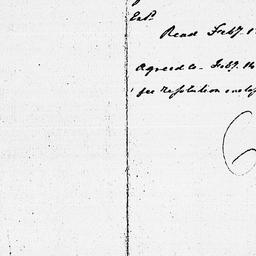 Read Feby. 1
Agreed to - Feby. 14
see resolution enclos